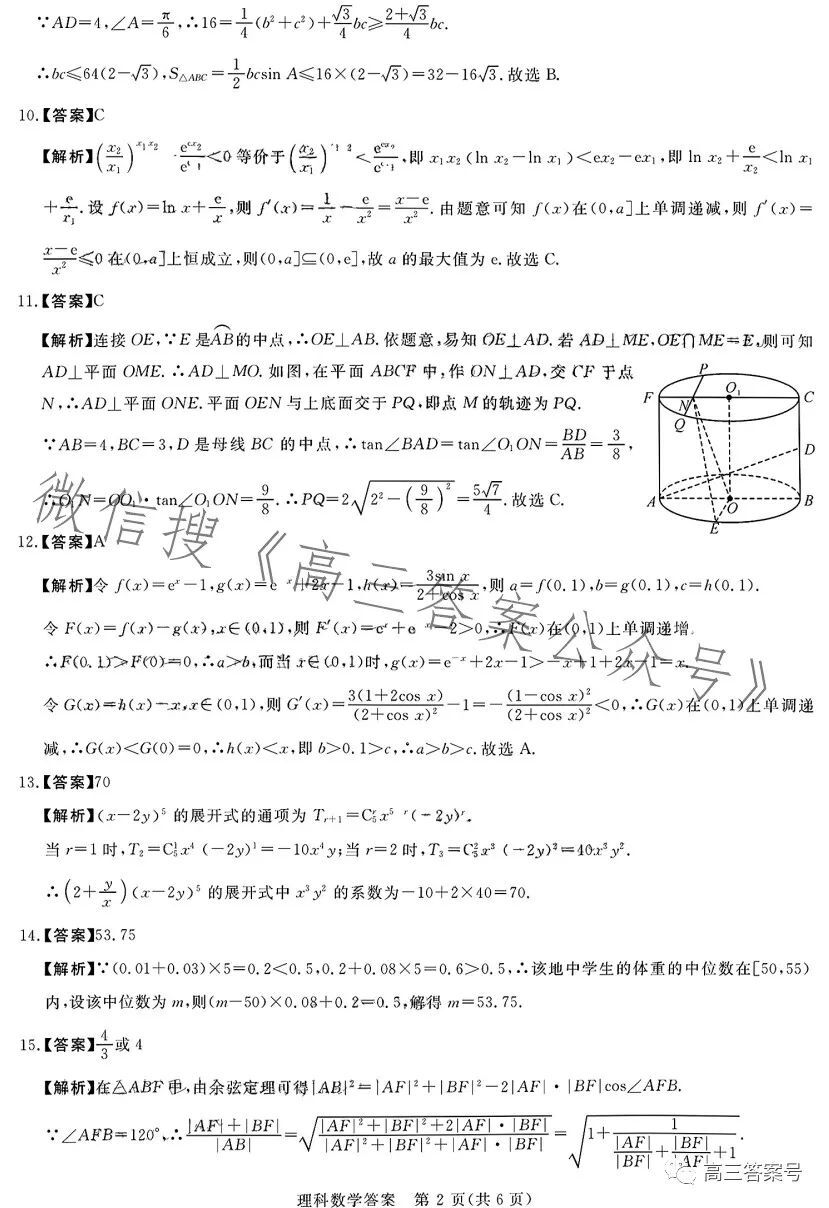 ∵AD=4,∠A=π/6,∴16=1/4(b²+c²)+√3/4bc≥(2+√3)/4bc.
∴bc≤64(2−√3),S△ABC=1/2bcsin A≤16×(2−√3)=32−16√3.故选 B.
10.【答案】C
【解析】(x₂/x₁)^(x₁x₂) − e^(ex₂)/e^(ex₁)<0 等价于(x₂/x₁)^(x₁x₂)<e^(ex₂)/e^(ex₁),即 x₁x₂(ln x₂−ln x₁)<ex₂−ex₁,即 ln x₂+e/x₂<ln x₁
+e/x₁.设 f(x)=ln x+e/x,则 f′(x)=1/x−e/x²=(x−e)/x².由题意可知 f(x)在(0,a]上单调递减,则 f′(x)=
(x−e)/x²≤0 在(0,a]上恒成立,则(0,a]⊆(0,e],故 a 的最大值为 e.故选 C.
11.【答案】C
【解析】连接 OE,∵E 是AB的中点,∴OE⊥AB.依题意,易知 OE⊥AD.若 AD⊥ME,OE∩ME=E,则可知
AD⊥平面 OME.∴AD⊥MO.如图,在平面 ABCF 中,作 ON⊥AD,交 CF 于点
N,∴AD⊥平面 ONE.平面 OEN 与上底面交于 PQ,即点 M 的轨迹为 PQ.
∵AB=4,BC=3,D 是母线 BC 的中点,∴tan∠BAD=tan∠O₁ON=BD/AB=3/8,
∴O₁N=OO₁·tan∠O₁ON=9/8.∴PQ=2√(2²−(9/8)²)=5√7/4.故选 C.
P
F
O₁
C
N
Q
D
A
O
B
E
12.【答案】A
【解析】令 f(x)=eˣ−1,g(x)=e⁻ˣ+2x−1,h(x)=3sin x/(2+cos x),则 a=f(0.1),b=g(0.1),c=h(0.1).
令 F(x)=f(x)−g(x),x∈(0,1),则 F′(x)=eˣ+e⁻ˣ−2>0,∴F(x)在(0,1)上单调递增.
∴F(0.1)>F(0)=0,∴a>b,而当 x∈(0,1)时,g(x)=e⁻ˣ+2x−1>−x+1+2x−1=x.
令 G(x)=h(x)−x,x∈(0,1),则 G′(x)=3(1+2cos x)/(2+cos x)²−1=−(1−cos x)²/(2+cos x)²<0,∴G(x)在(0,1)上单调递
减,∴G(x)<G(0)=0,∴h(x)<x,即 b>0.1>c,∴a>b>c.故选 A.
13.【答案】70
【解析】(x−2y)⁵ 的展开式的通项为 Tᵣ₊₁=C₅ʳx⁵⁻ʳ(−2y)ʳ.
当 r=1 时,T₂=C₅¹x⁴(−2y)¹=−10x⁴y;当 r=2 时,T₃=C₅²x³(−2y)²=40x³y².
∴(2+y/x)(x−2y)⁵ 的展开式中 x³y² 的系数为−10+2×40=70.
14.【答案】53.75
【解析】∵(0.01+0.03)×5=0.2<0.5,0.2+0.08×5=0.6>0.5,∴该地中学生的体重的中位数在[50,55)
内,设该中位数为 m,则(m−50)×0.08+0.2=0.5,解得 m=53.75.
15.【答案】4/3或 4
【解析】在△ABF 中,由余弦定理可得|AB|²=|AF|²+|BF|²−2|AF|·|BF|cos∠AFB.
∵∠AFB=120°,∴(|AF|+|BF|)/|AB|=√((|AF|²+|BF|²+2|AF|·|BF|)/(|AF|²+|BF|²+|AF|·|BF|))=√(1+1/(|AF|/|BF|+|BF|/|AF|+1)).
微信搜《高三答案公众号》
高三答案号
理科数学答案 第 2 页(共 6 页)